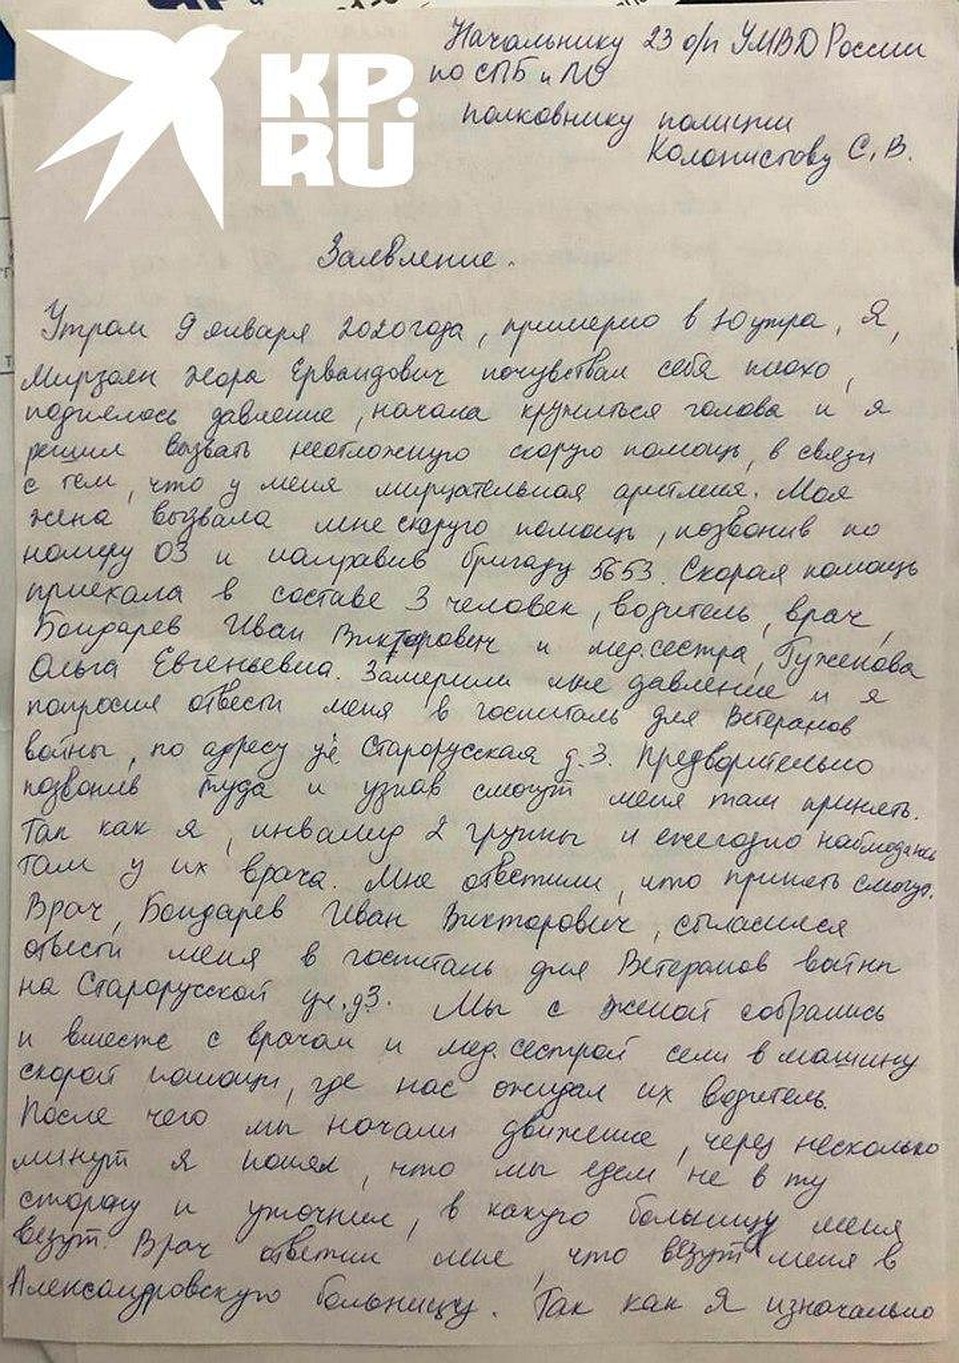 KP.
RU
Начальнику 23 о/п УМВД России
по СПБ и ЛО
полковнику полиции
Колонистову С.В.
Заявление.
Утром 9 января 2020 года, примерно в 10 утра, Я,
Мирзоян Жора Ервандович почувствал себя плохо,
поднялось давление, начала кружиться голова и я
решил вызвать неотложную скорую помощь, в связи
с тем, что у меня мирцательная аритмия. Моя
жена вызвала мне скорую помощь, позвонив по
номеру 03 и направив бригаду 5653. Скорая помощь
приехала в составе 3 человек, водитель, врач,
Бондарев Иван Викторович и мед.сестра, Гуженова
Ольга Евгеньевна. Замерили мне давление и я
попросил отвести меня в госпиталь для Ветеранов
войны, по адресу ул Старорусская д.3. Предворительно
позвонив туда и узнав смогут меня там принять.
Так как я, инвалид 2 группы и ежегодно наблюдаюсь
там у их врача. Мне ответили, что принять смогут.
Врач, Бондарев Иван Викторович, согласился
отвести меня в госпиталь для Ветеранов войны
на Старорусской ул.д3. Мы с женой собрались
и вместе с врачом и мед.сестрой сели в машину
скорой помощи, где нас ожидал их водитель.
После чего мы начали движение, через несколько
минут я понял, что мы едем не в ту
сторону и уточнил, в какую больницу меня
везут. Врач ответил мне, что везут меня в
Александровскую больницу. Так как Я изночально